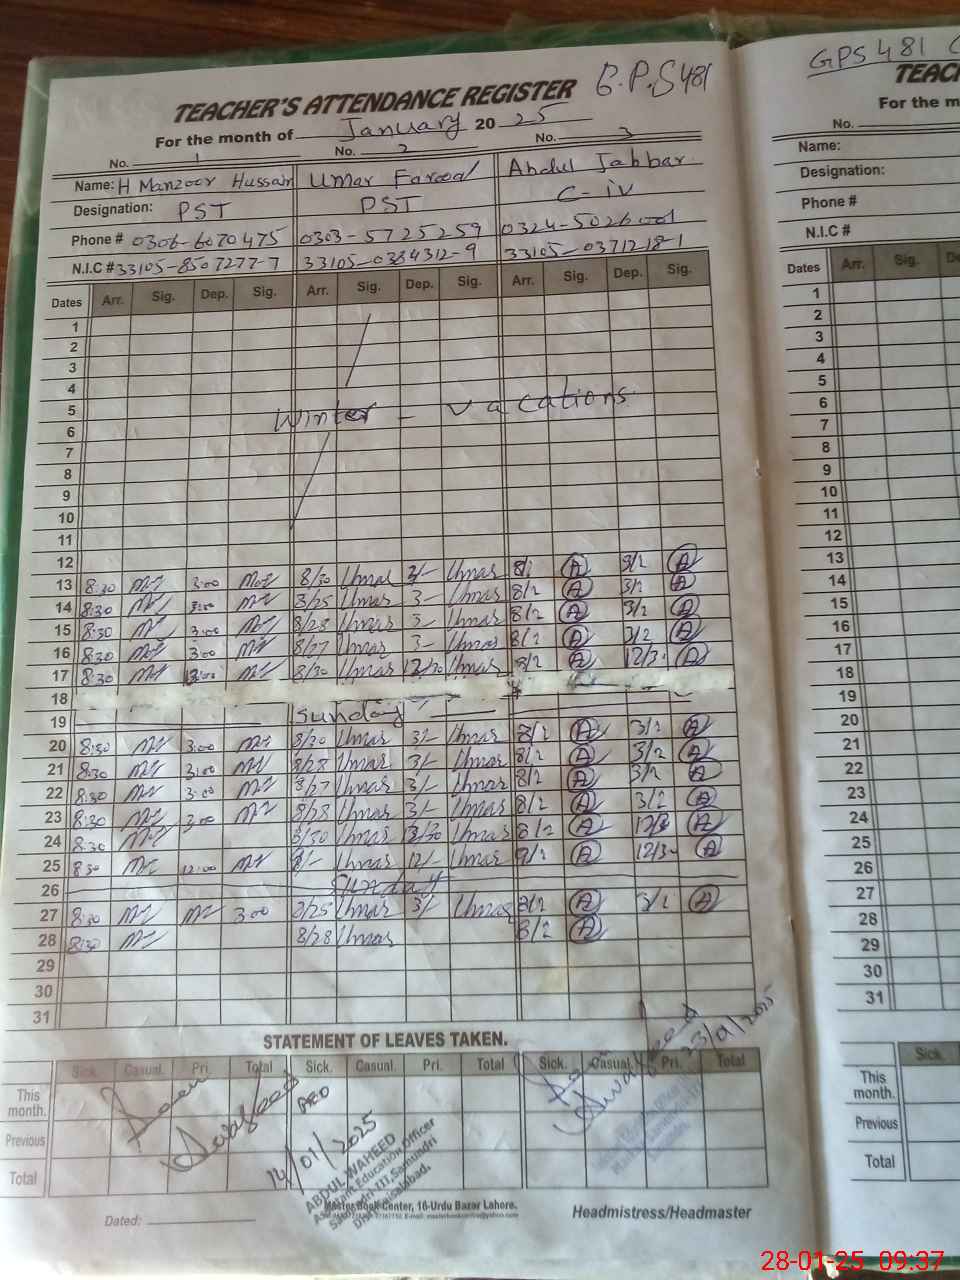 G.P.S 481
TEACHER'S ATTENDANCE REGISTER
For the month of January 2025
No. 1 No. 2 No. 3
Name: H Manzoor Hussain Umar Farooq Abdul Jabbar
Designation: PST PST C-iv
Phone # 0306-6070475 0303-5725259 0324-5026001
N.I.C # 33105-8507277-7 33105-0384312-9 33105-0371218-1
Dates Arr. Sig. Dep. Sig. Arr. Sig. Dep. Sig. Arr. Sig. Dep. Sig.
1
2
3
4
5 Winter - vacations
6
7
8
9
10
11
12
13 8:30 3:00 8/30 Umar 3/- Umar 8/2 A 3/2 A
14 8:30 3:00 8/25 Umar 3- Umar 8/2 A 3/2 A
15 8:30 3:00 8/28 Umar 3- Umar 8/2 A 3/2 A
16 8:30 3:00 8/27 Umar 3- Umar 8/2 A 3/2 A
17 8:30 8/30 Umar 12/30 Umar 8/2 A 12/30 A
18
19 Sunday
20 8:30 3:00 8/30 Umar 3/- Umar 8/2 A 3/2 A
21 8:30 3:00 8/28 Umar 3/- Umar 8/2 A 3/2 A
22 8:30 3:00 8/27 Umar 3/- Umar 8/2 A 3/2 A
23 8:30 3:00 8/28 Umar 3/- Umar 8/2 A 3/2 A
24 8/30 Umar 12/30 Umar 8/2 A A
25 8:30 12:00 8/- Umar 12/- Umar A 12/30 A
26 Sunday
27 8:30 3:00 8/25 Umar 3/- Umar 8/2 A 3/2 A
28 8:30 8/28 Umar 8/2 A
29
30
31
STATEMENT OF LEAVES TAKEN.
Sick. Casual. Pri. Total Sick. Casual. Pri. Total Sick. Casual. Pri. Total
This month.
Previous
Total
AEO
14/01/2025
23/01/2025
ABDUL WAHEED
Assistant Education Officer
Samundri-III, Samundri
Distt. Faisalabad.
Master Book Center, 16-Urdu Bazar Lahore.
Dated:
Headmistress/Headmaster
GPS 481
TEAC
For the m
No.
Name:
Designation:
Phone #
N.I.C #
Dates Arr. Sig.
1
2
3
4
5
6
7
8
9
10
11
12
13
14
15
16
17
18
19
20
21
22
23
24
25
26
27
28
29
30
31
Sick.
This month.
Previous
Total
28-01-25 09:37